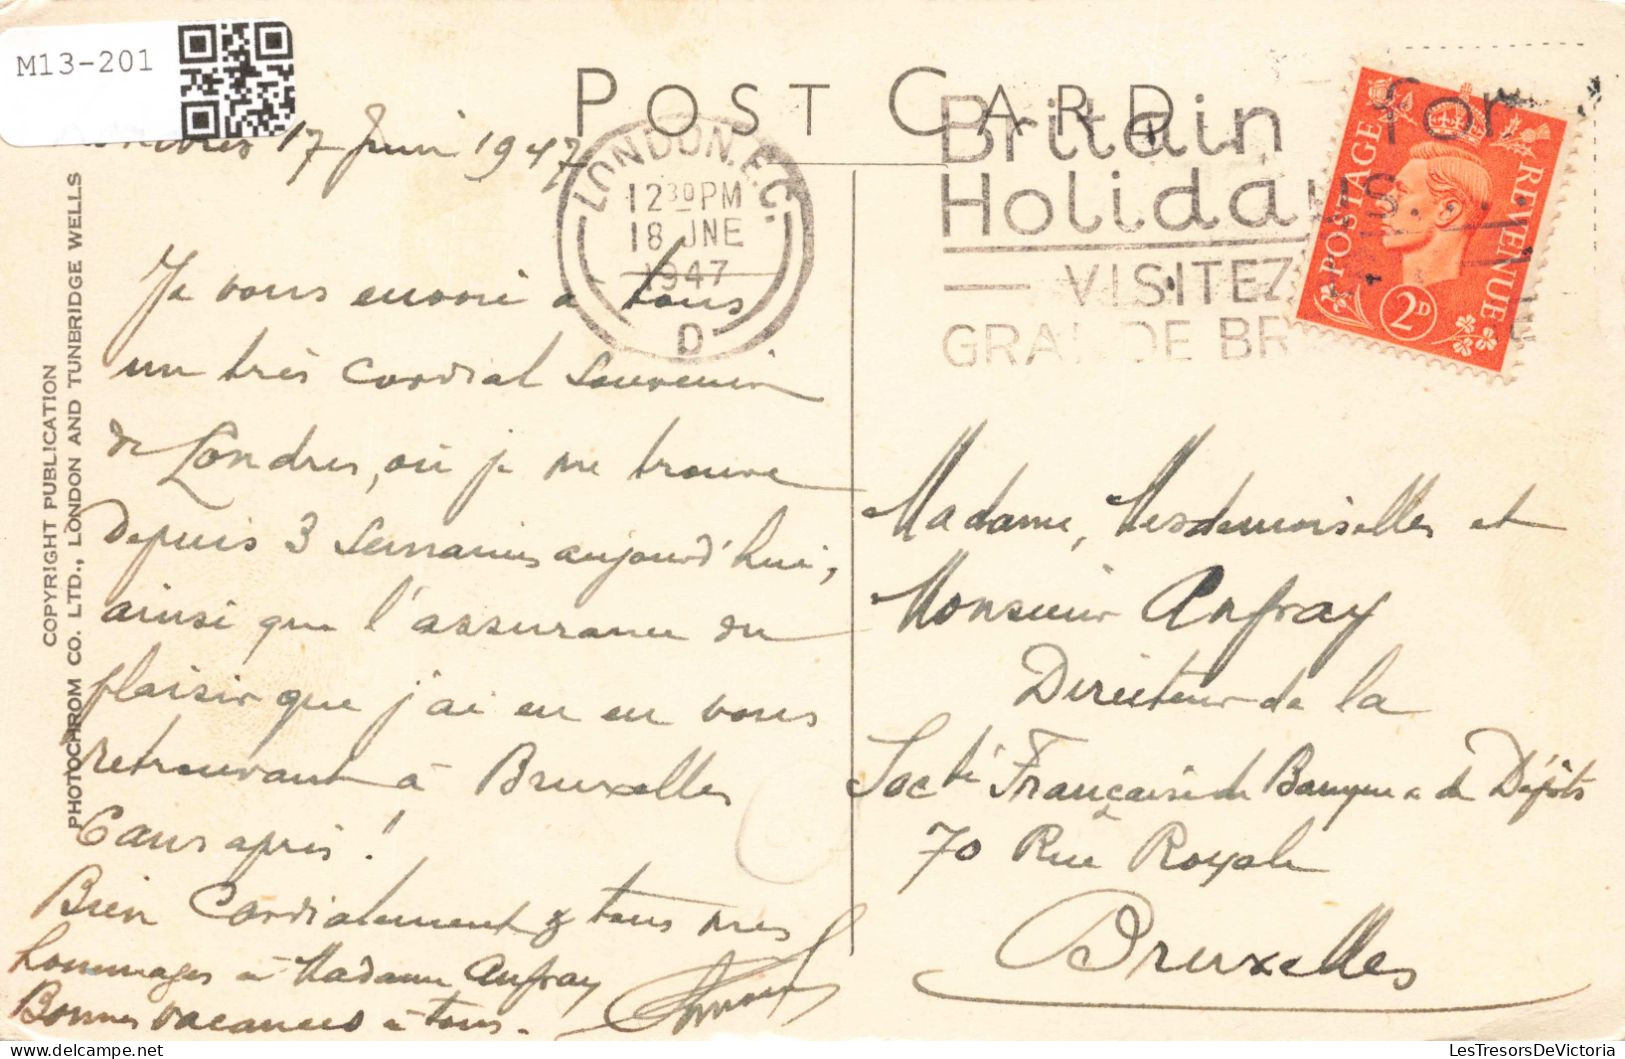 M13-201
POST CARD
Londres 17 Juin 1947
LONDON. E.C.
12 30 PM
18 JNE
1947
D
Britain for
Holidays
VISITEZ
GRANDE BR
POSTAGE REVENUE
2D
COPYRIGHT PUBLICATION
PHOTOCHROM CO. LTD., LONDON AND TUNBRIDGE WELLS
Je vous envoie à tous
un très cordial souvenir
de Londres, où je me trouve
depuis 3 semaines aujourd'hui,
ainsi que l'assurance du
plaisir que j'ai eu en vous
retrouvant à Bruxelles
6 ans après !
Bien Cordialement à tous mes
hommages à Madame Anfray
Bonnes vacances à tous.
Madame, Mesdemoiselles et
Monsieur Anfray
Directeur de la
Socté Française de Banque & de Dépôts
70 Rue Royale
Bruxelles
LesTresorsDeVictoria